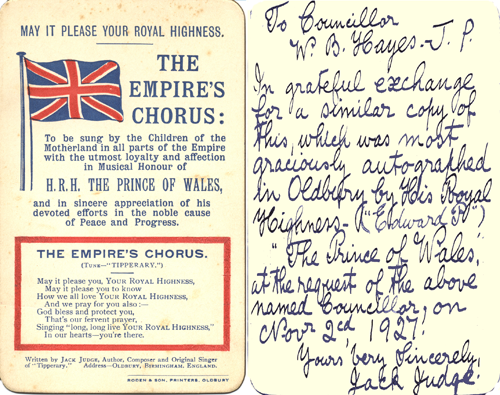 MAY IT PLEASE YOUR ROYAL HIGHNESS.
THE
EMPIRE'S
CHORUS:
To be sung by the Children of the
Motherland in all parts of the Empire
with the utmost loyalty and affection
in Musical Honour of
H.R.H. THE PRINCE OF WALES,
and in sincere appreciation of his
devoted efforts in the noble cause
of Peace and Progress.
THE EMPIRE'S CHORUS.
(TUNE—"TIPPERARY.")
May it please you, YOUR ROYAL HIGHNESS,
May it please you to know
How we all love YOUR ROYAL HIGHNESS,
And we pray for you also:—
God bless and protect you,
That's our fervent prayer,
Singing "long, long live YOUR ROYAL HIGHNESS,"
In our hearts—you're there.
Written by JACK JUDGE, Author, Composer and Original Singer
of "Tipperary." Address—OLDBURY, BIRMINGHAM, ENGLAND.
BODEN & SON, PRINTERS, OLDBURY
To Councillor
W. B. Hayes - J. P.
In grateful exchange
for a similar copy of
this, which was most
graciously autographed
in Oldbury by His Royal
Highness - ("Edward P")
"The Prince of Wales,
at the request of the above
named Councillor, on
Novr 2cd, 1927.
Yours very Sincerely,
Jack Judge.